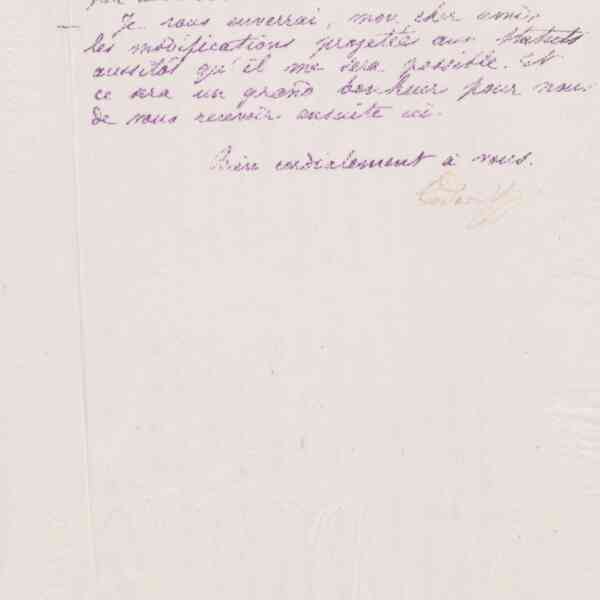 Je vous enverrai, mon cher ami,
les modifications projetées aux Statuts
aussitôt qu'il me sera possible. Et
ce sera un grand bonheur pour nous
de vous recevoir ensuite ici.
Bien cordialement à vous.